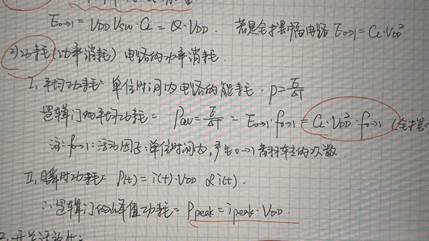 E₀→₁ = VDD VSW · CL = Q · VDD    若是全摆幅电路 E₀→₁ = CL · VDD²
2) 功耗(功率消耗) 电路的功率消耗.
I. 平均功耗: 单位时间内电路的能耗. P = E/ΔT
逻辑门的平均功耗 = Pav = E/ΔT = E₀→₁ · f₀→₁ = CL · VDD² · f₀→₁ (全摆
注: f₀→₁: 活动因子: 单位时间内, 产生0→1翻转的次数
II. 瞬时功耗: P(t) = i(t) · VDD ∝ i(t).
∴ 逻辑门的峰值功耗 = Ppeak = ipeak · VDD